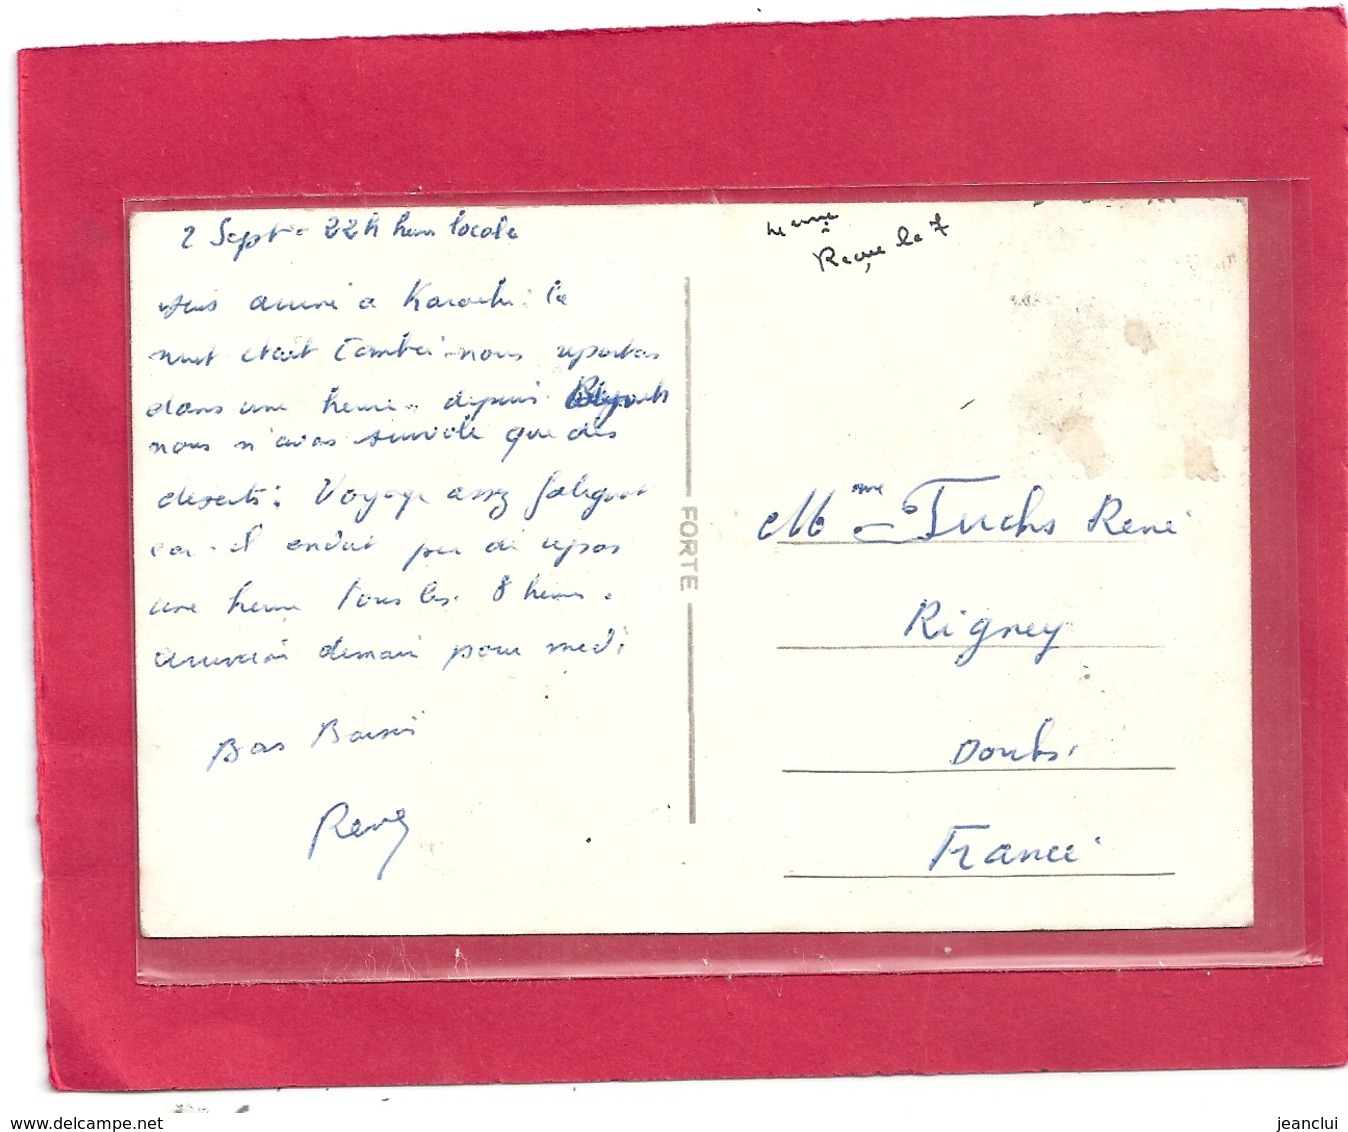 2 Sept - 22h heure locale
suis arrivé a Karachi : la
nuit etait tombée - nous repartons
dans une heure - depuis
nous n'avons survolé que des
deserts : Voyage assez fatiguant
car il endat peu de repos
une heure tous les 8 heures.
arriverai demain pour midi
Bons Baisers
René
Reçue le 7
FORTE
Mme Fuchs René
Rigney
Doubs.
France.
www.delcampe.net
jeanclui